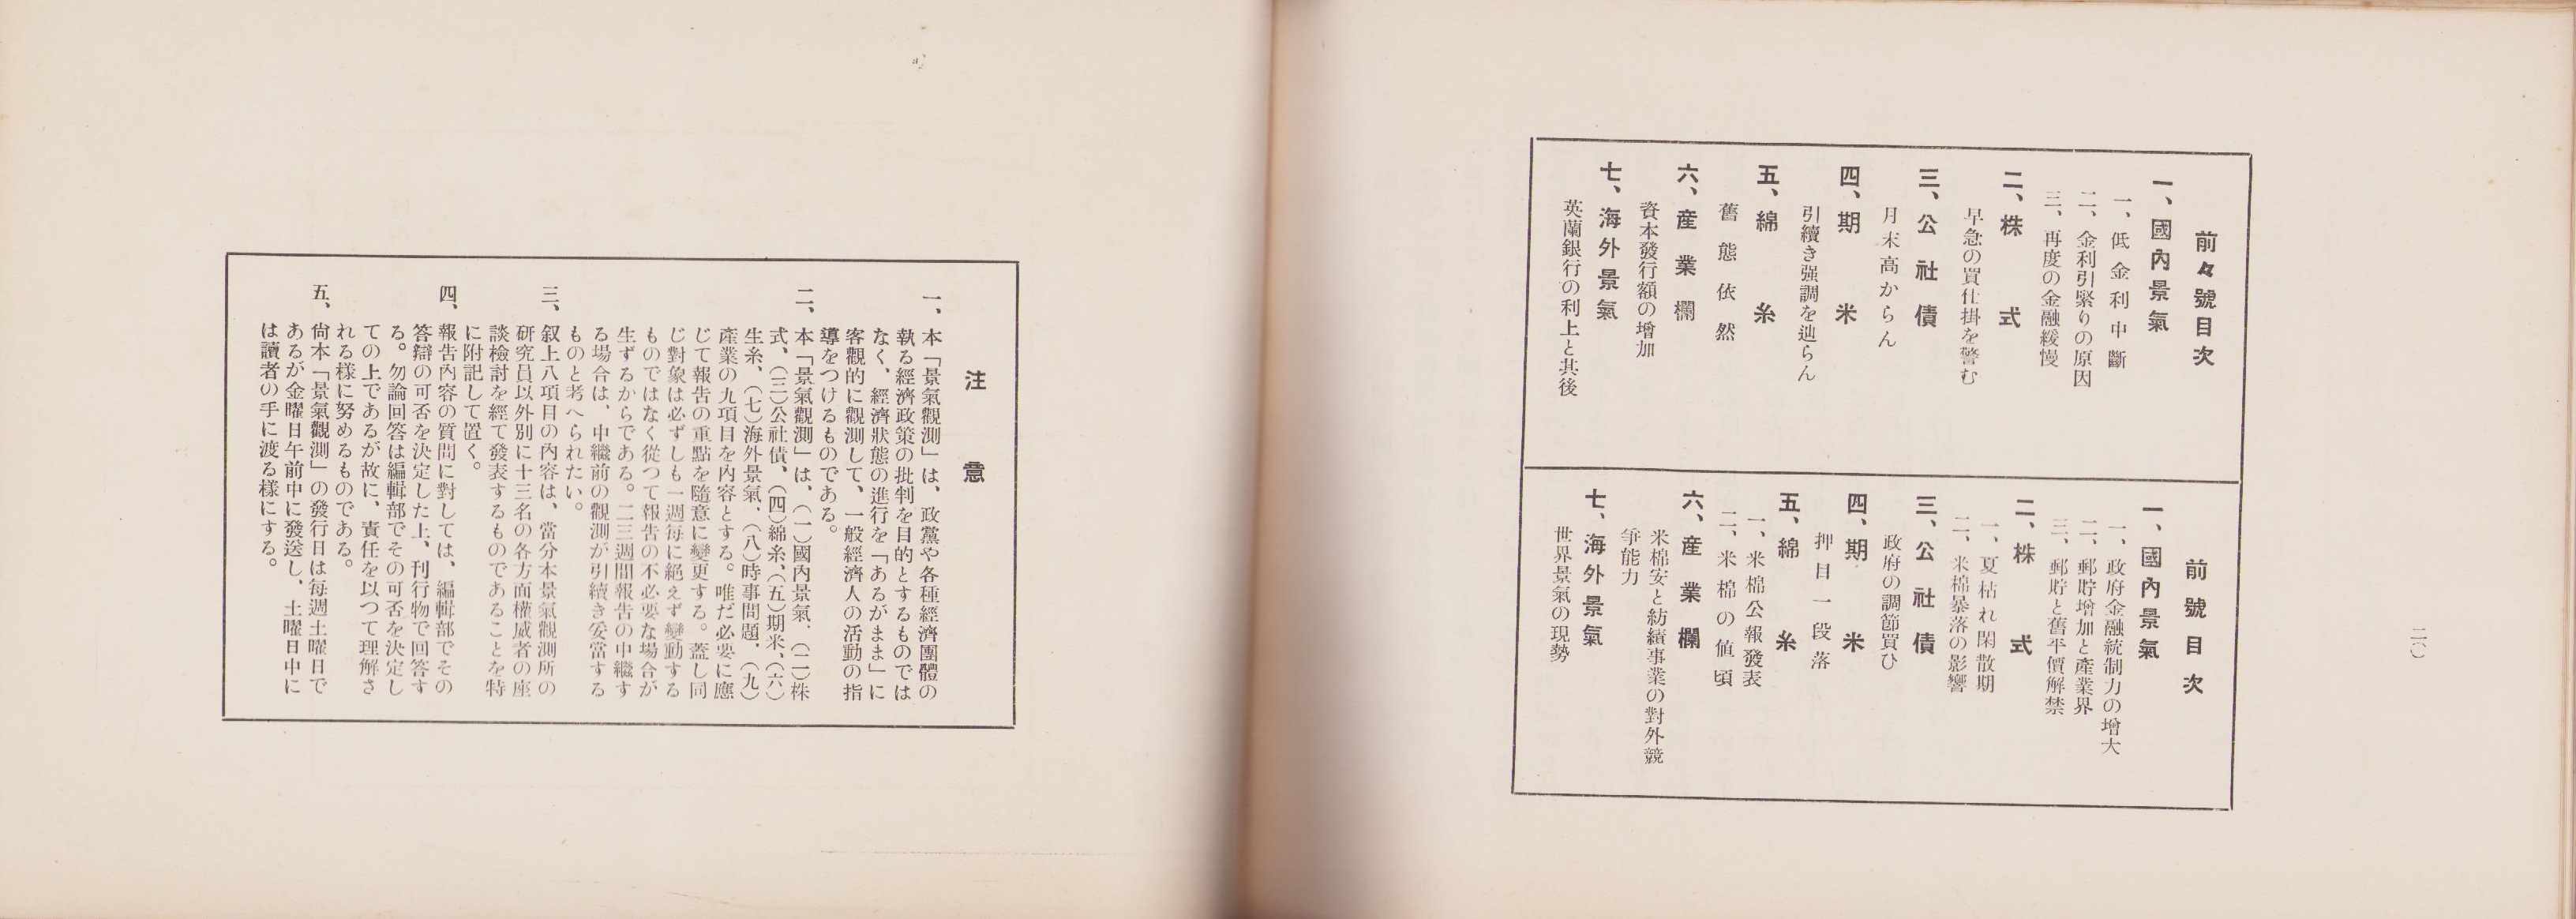 二六
前々號目次
一、國內景氣
一、低金利中斷
二、金利引緊りの原因
三、再度の金融緩慢
二、株式
早急の買仕掛を警む
三、公社債
月末高からん
四、期米
引續き强調を辿らん
五、綿糸
舊態依然
六、産業欄
資本發行額の增加
七、海外景氣
英蘭銀行の利上と其後
前號目次
一、國內景氣
一、政府金融統制力の增大
二、郵貯增加と產業界
三、郵貯と舊平價解禁
二、株式
一、夏枯れ閑散期
二、米棉暴落の影響
三、公社債
政府の調節買ひ
四、期米
押目一段落
五、綿糸
一、米棉公報發表
二、米棉の値頃
六、産業欄
米棉安と紡績事業の對外競
爭能力
七、海外景氣
世界景氣の現勢
注意
一、本「景氣觀測」は、政黨や各種經濟團體の
執る經濟政策の批判を目的とするものでは
なく、經濟狀態の進行を「あるがまま」に
客觀的に觀測して、一般經濟人の活動の指
導をつけるものである。
二、本「景氣觀測」は、(一)國內景氣、(二)株
式、(三)公社債、(四)綿糸、(五)期米、(六)
生糸、(七)海外景氣、(八)時事問題、(九)
產業の九項目を內容とする。唯だ必要に應
じて報告の重點を隨意に變更する。蓋し同
じ對象は必ずしも一週每に絕えず變動する
ものではなく從つて報告の不必要な場合が
生ずるからである。二三週間報告の中繼す
る場合は、中繼前の觀測が引續き妥當する
ものと考へられたい。
三、叙上八項目の內容は、當分本景氣觀測所の
硏究員以外別に十三名の各方面權威者の座
談檢討を經て發表するものであることを特
に附記して置く。
四、報告內容の質問に對しては、編輯部でその
答辯の可否を決定した上、刊行物で回答す
る。勿論回答は編輯部でその可否を決定し
ての上であるが故に、責任を以つて理解さ
れる樣に努めるものである。
五、尙本「景氣觀測」の發行日は每週土曜日で
あるが金曜日午前中に發送し、土曜日中に
は讀者の手に渡る樣にする。